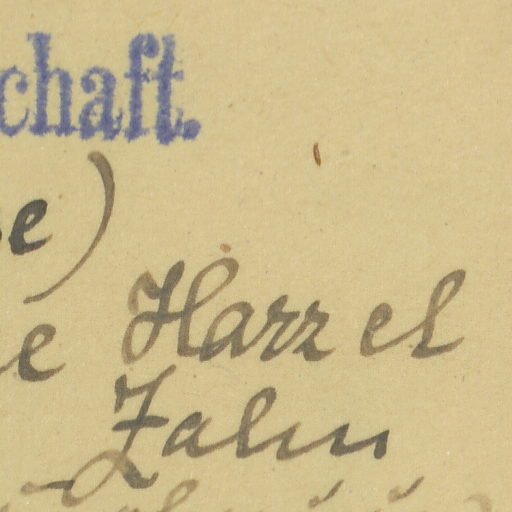 chaft.
e)
e Harzel
Zalm